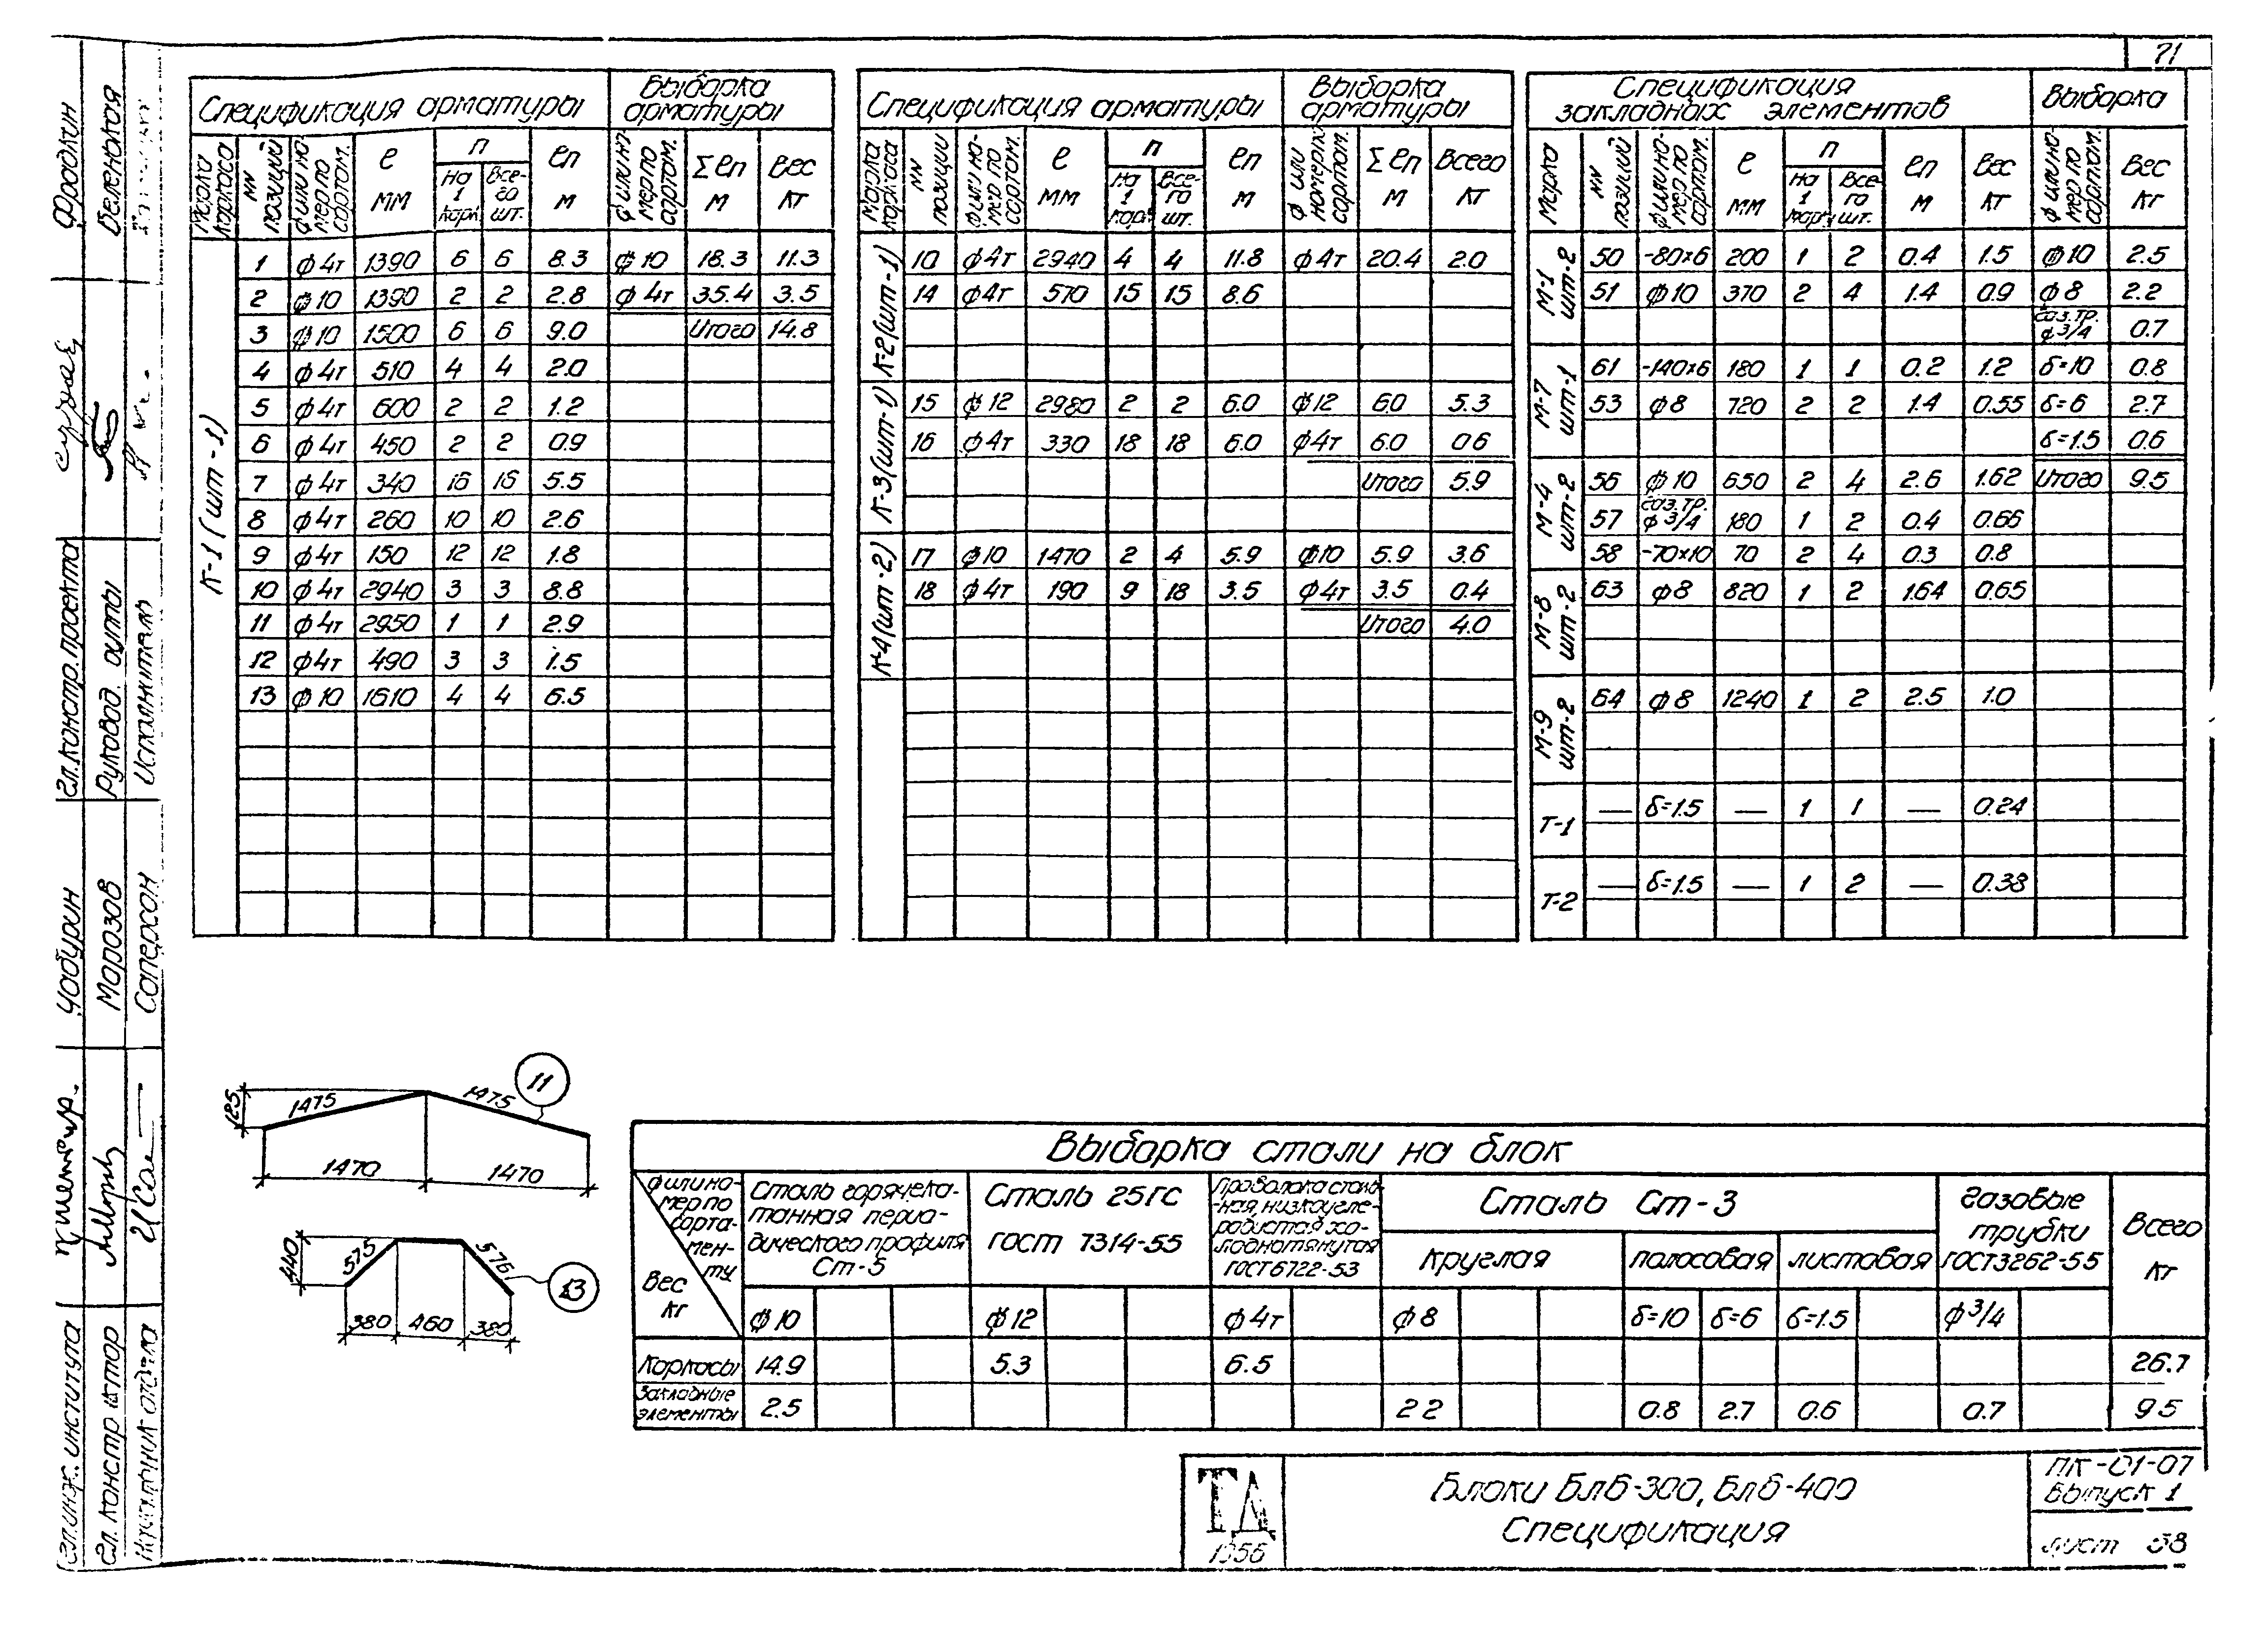 71
Спецификация арматуры
Выборка арматуры
Марка каркаса | NN позиций | ф или номер по сортам. | ℓ мм | п на 1 карк. | п всего шт. | ℓп м | ф или номер по сортам. | Σℓп м | Вес кг
К-1 (шт-1)
1 ф4т 1390 6 6 8.3 ф10 18.3 11.3
2 ф10 1390 2 2 2.8 ф4т 35.4 3.5
3 ф10 1500 6 6 9.0 Итого 14.8
4 ф4т 510 4 4 2.0
5 ф4т 600 2 2 1.2
6 ф4т 450 2 2 0.9
7 ф4т 340 16 16 5.5
8 ф4т 260 10 10 2.6
9 ф4т 150 12 12 1.8
10 ф4т 2940 3 3 8.8
11 ф4т 2950 1 1 2.9
12 ф4т 490 3 3 1.5
13 ф10 1610 4 4 6.5
Спецификация арматуры
Выборка арматуры
Марка каркаса | NN позиции | ф или номер по сортам. | ℓ мм | п на 1 карк. | п всего шт. | ℓп м | ф или номер по сортам. | Σℓп м | Всего кг
К-2 (шт-1)
10 ф4т 2940 4 4 11.8 ф4т 20.4 2.0
14 ф4т 570 15 15 8.6
К-3 (шт-1)
15 ф12 2980 2 2 6.0 ф12 6.0 5.3
16 ф4т 330 18 18 6.0 ф4т 6.0 0.6
Итого 5.9
К-4 (шт-2)
17 ф10 1470 2 4 5.9 ф10 5.9 3.6
18 ф4т 190 9 18 3.5 ф4т 3.5 0.4
Итого 4.0
Спецификация закладных элементов
Выборка
Марка | NN позиций | ф или номер по сортам. | ℓ мм | п на 1 марку | п всего шт. | ℓп м | Вес кг | ф или номер по сортам. | Вес кг
М-1 шт-2
50 -80×6 200 1 2 0.4 1.5 ф10 2.5
51 ф10 370 2 4 1.4 0.9 ф8 2.2
газ.тр. ф3/4 0.7
М-7 шт-1
61 -140×6 180 1 1 0.2 1.2 δ=10 0.8
53 ф8 720 2 2 1.4 0.55 δ=6 2.7
δ=1.5 0.6
М-4 шт-2
56 ф10 650 2 4 2.6 1.62 Итого 9.5
57 газ.тр. ф3/4 180 1 2 0.4 0.66
58 -70×10 70 2 4 0.3 0.8
М-8 шт-2
63 ф8 820 1 2 1.64 0.65
М-9 шт-2
64 ф8 1240 1 2 2.5 1.0
Т-1
— δ=1.5 — 1 1 — 0.24
Т-2
— δ=1.5 — 1 2 — 0.38
125 1475 1475 11
1470 1470
440 575 575 13
380 460 380
Выборка стали на блок
ф или номер по сортаменту
Вес кг
Сталь горячекатанная периодического профиля Ст-5
Сталь 25ГС ГОСТ 7314-55
Проволока стальная, низкоуглеродистая холоднотянутая ГОСТ 6722-53
Сталь Ст-3
круглая | полосовая | листовая
Газовые трубки ГОСТ 3262-55
Всего кг
ф10 ф12 ф4т ф8 δ=10 δ=6 δ=1.5 ф3/4
Каркасы 14.9 5.3 6.5 26.7
Закладные элементы 2.5 2.2 0.8 2.7 0.6 0.7 9.5
ТД
1956
Блоки БлБ-300, БлБ-400
Спецификация
ПК-01-07
Выпуск 1
Лист 38
Фрадкин
Беленькая
Гл. констр. проекта
Руковод. группы
Исполнитель
Чабурин
Морозов
Соперсон
Гл. инж. института
Гл. конструктор
Начальник отдела